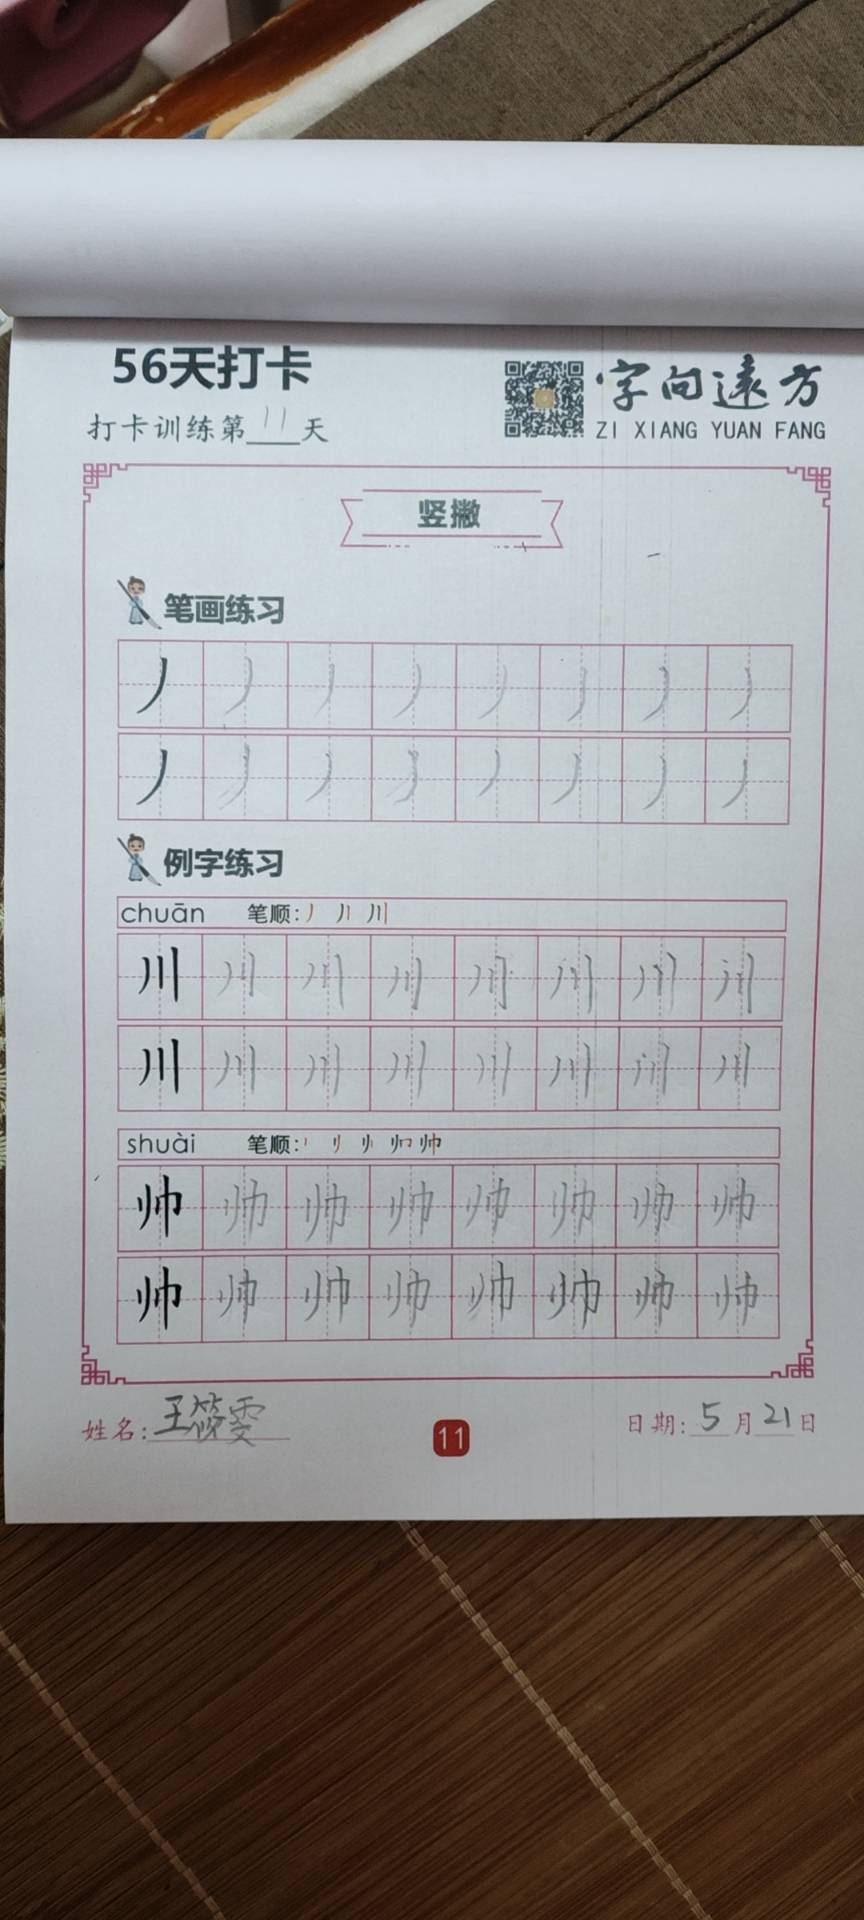 56天打卡
字向远方
打卡训练第11天
ZI XIANG YUAN FANG
竖撇
笔画练习
丿丿丿丿丿丿丿丿
丿丿丿丿丿丿丿丿
例字练习
chuān 笔顺：丿 丿丨 川
川川川川川川川川
川川川川川川川川
shuài 笔顺：
帅帅帅帅帅帅帅帅
帅帅帅帅帅帅帅帅
姓名：王筱雯
11
日期：5月21日